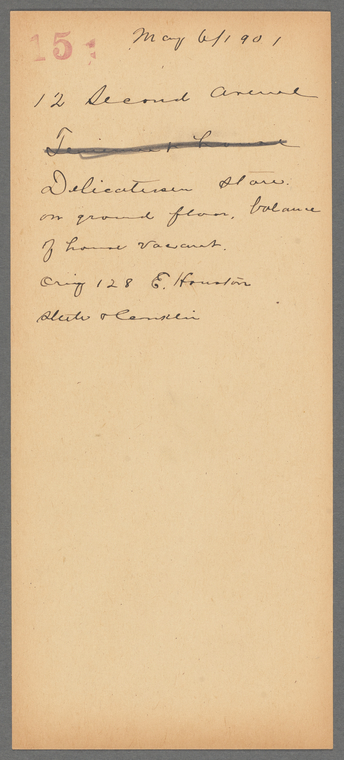 151
May 6/1901
12 Second Avenue
Tenement house
Delicatessen store.
on ground floor, balance
of house vacant.
Orig 128 E. Houston